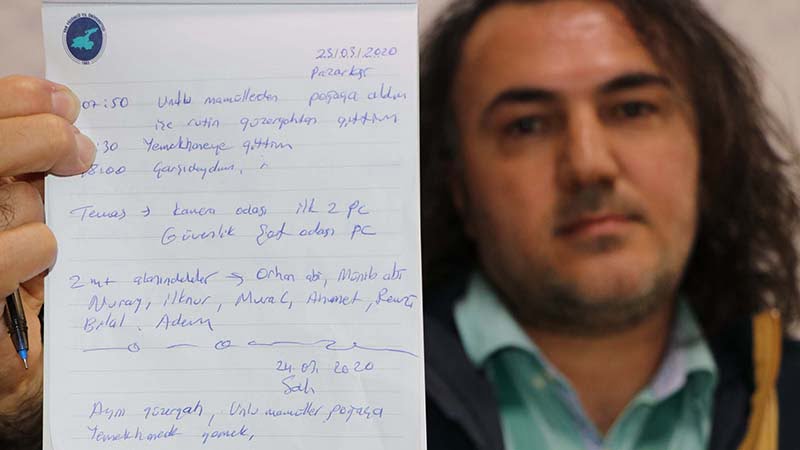 23/03/2020
Pazartesi
07:50 Unlu mamüllerden poğaça aldım
ise rutin güzergahtan gittim
:30 Yemekhaneye gittim
18:00 Çarşıdaydım,
Temas → Kamera odası ilk 2 PC
Güvenlik Şef odası PC
2 mt alanındakiler → Orhan abi, Münib abi
Nuray, ilknur, Murat, Ahmet, Remzi
Bilal. Adem
24.03.2020
Salı
Aynı güzergah, Unlu mamüller poğaça
Yemekhanede yemek,